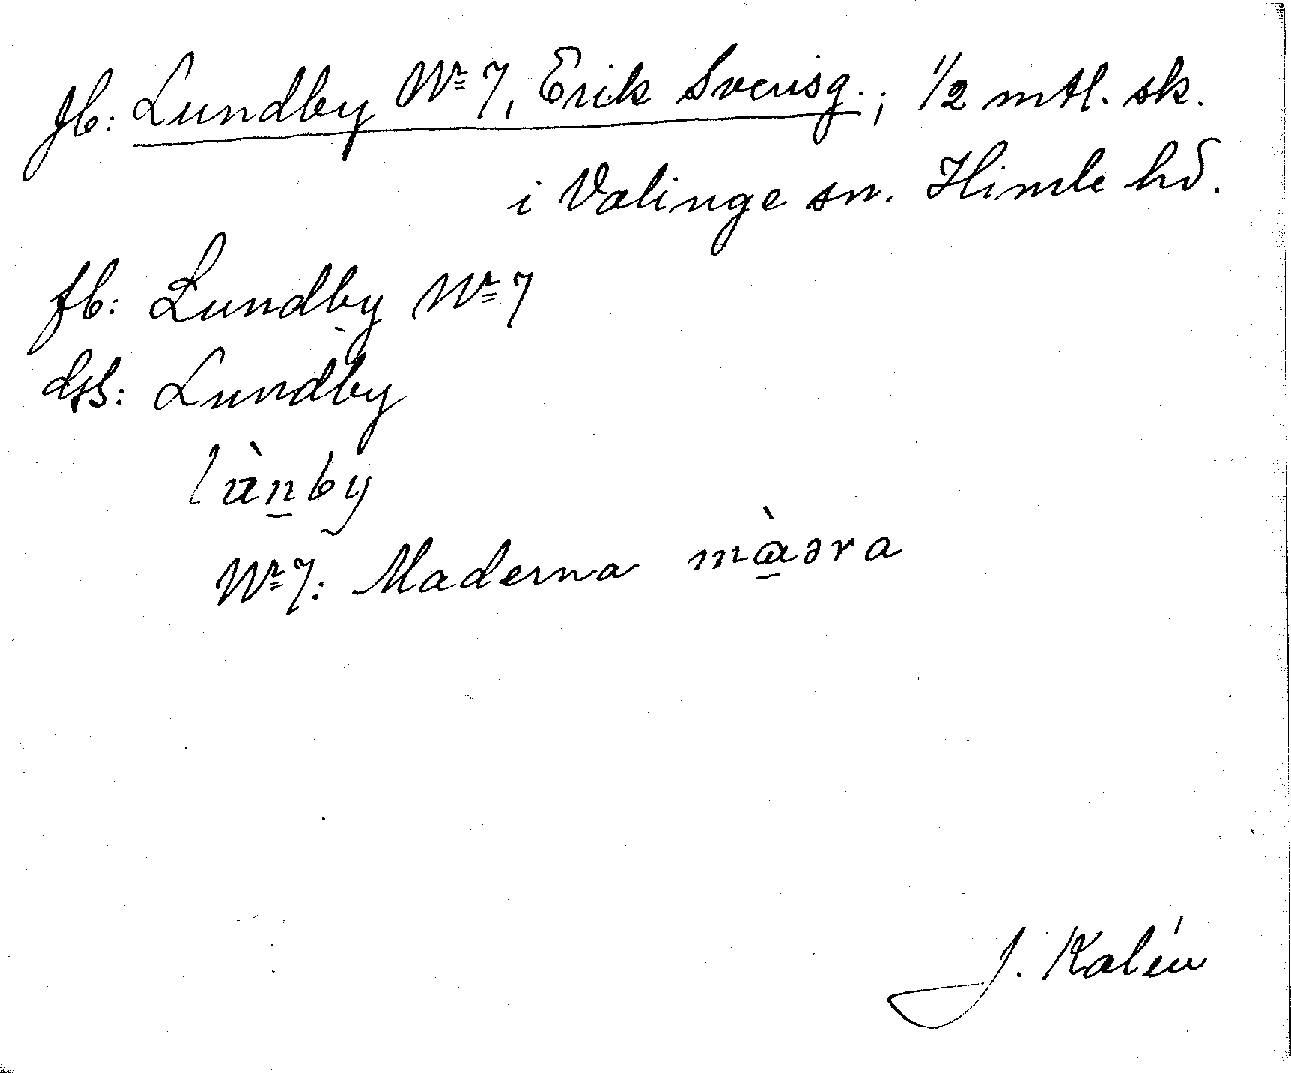 jb: Lundby Nr 7, Erik Svensg.; 1/2 mtl. sk.
i Valinge sn. Himle hd.
fb: Lundby Nr 7
dsb: Lundby
lùn̲by
Nr 7: Maderna mà̲əra
J. Kalén